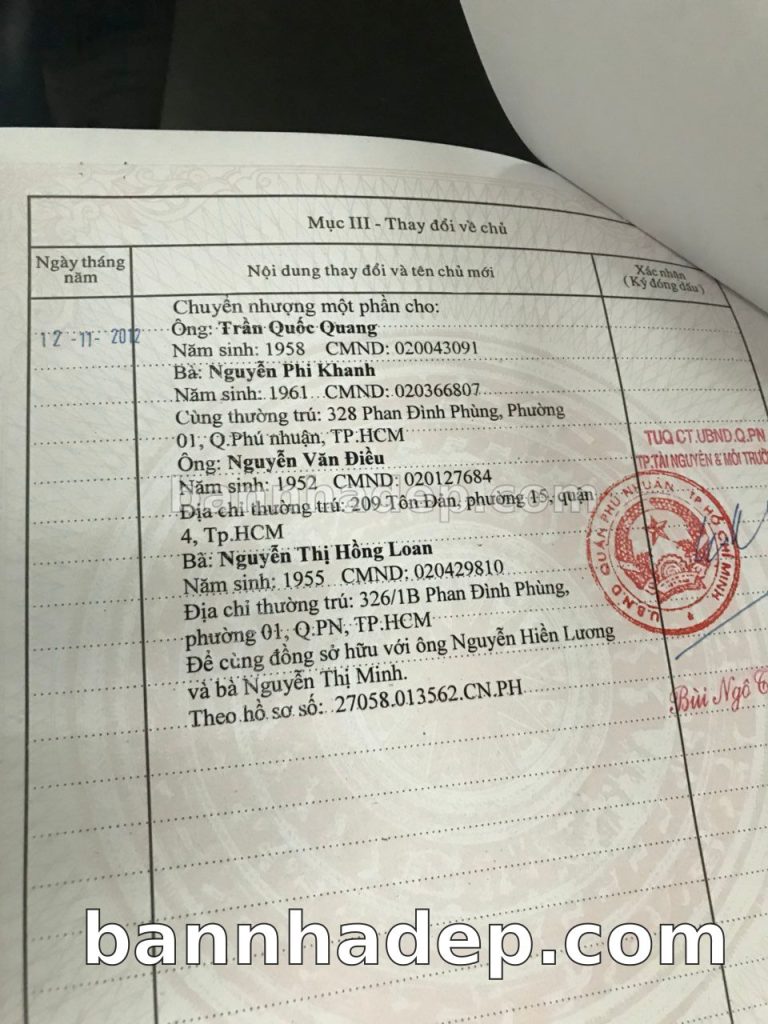 Mục III - Thay đổi về chủ
Ngày tháng năm
Nội dung thay đổi và tên chủ mới
Xác nhận
(Ký đóng dấu)
12 -11- 2012
Chuyển nhượng một phần cho:
Ông: Trần Quốc Quang
Năm sinh: 1958 CMND: 020043091
Bà: Nguyễn Phi Khanh
Năm sinh: 1961 CMND: 020366807
Cùng thường trú: 328 Phan Đình Phùng, Phường
01, Q.Phú nhuận, TP.HCM
Ông: Nguyễn Văn Điều
Năm sinh: 1952 CMND: 020127684
Địa chỉ thường trú: 209 Tôn Đản, phường 15, quận
4, Tp.HCM
Bà: Nguyễn Thị Hồng Loan
Năm sinh: 1955 CMND: 020429810
Địa chỉ thường trú: 326/1B Phan Đình Phùng,
phường 01, Q.PN, TP.HCM
Để cùng đồng sở hữu với ông Nguyễn Hiền Lương
và bà Nguyễn Thị Minh.
Theo hồ sơ số: 27058.013562.CN.PH
TUQ CT.UBND.Q.PN
TP.TÀI NGUYÊN & MÔI TRƯỜ
U.B.N.D QUẬN PHÚ NHUẬN TP HỒ CHÍ MINH
Bùi Ngô
bannhadep.com
bannhadep.com